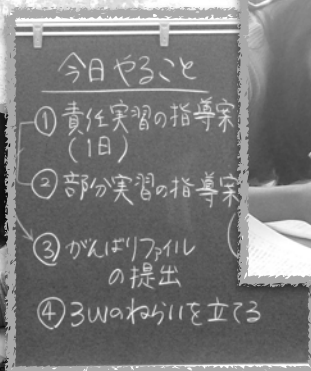 今日やること
①責任実習の指導案
(1日)
②部分実習の指導案
③がんばりファイル
の提出
④3Wのねらいを立てる